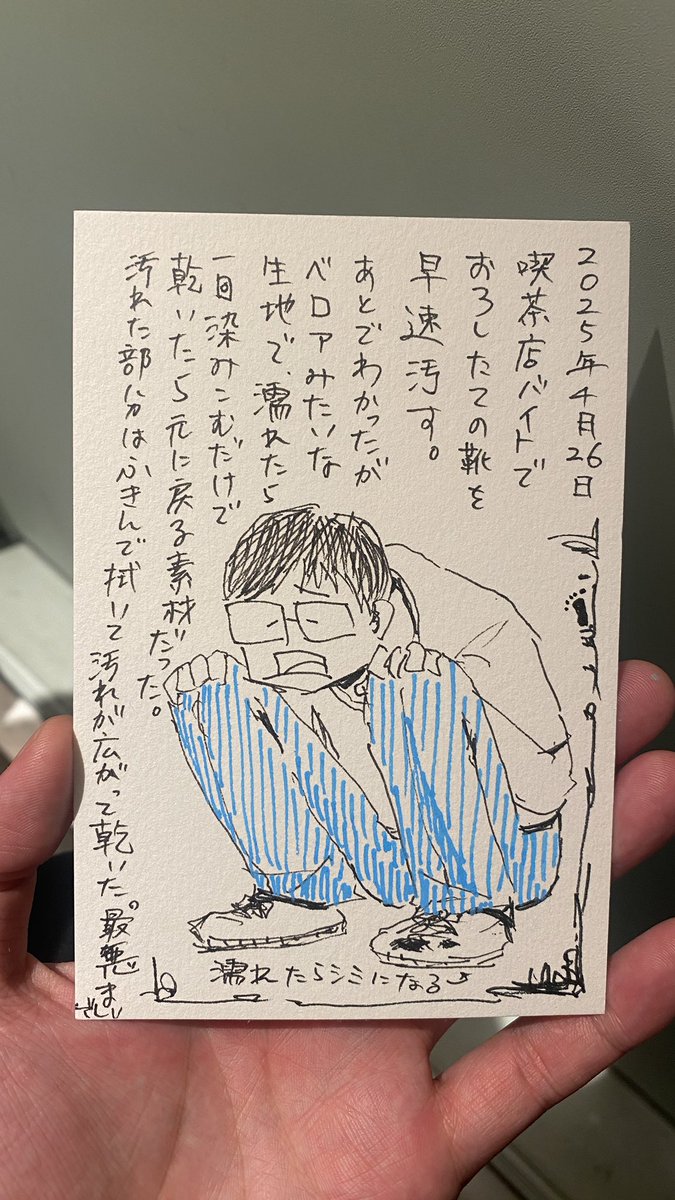 2025年4月26日
喫茶店バイトで
おろしたての靴を
早速汚す。
あとでわかったが
ベロアみたいな
生地で、濡れたら
一回染みこむだけで
乾いたら元に戻る素材だった。
汚れた部分はふきんで拭いて汚れが広がって乾いた。最悪
濡れたらシミになる